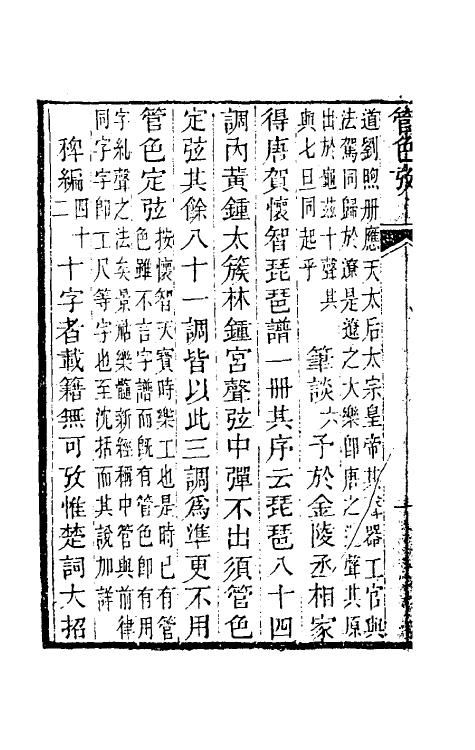 管色攷
道劉煦册應天太后太宗皇帝其聲器工官與
法駕同歸於遼是遼之大樂卽唐之聲其原
出於龜兹十聲其
與七旦同起乎
筆談六予於金陵丞相家
得唐賀懷智琵琶譜一冊其序云琵琶八十四
調內黃鍾太簇林鍾宮聲弦中彈不出須管色
定弦其餘八十一調皆以此三調爲準更不用
管色定弦
按懷智天寶時樂工也是時已有管
色雖不言字譜而旣有管色卽有用
字糺聲之法矣景祐樂髓新經稱中管與前律
同字字卽工尺等字也至沈括而其說加詳
稗編
四十
二
十字者載籍無可攷惟楚詞大招